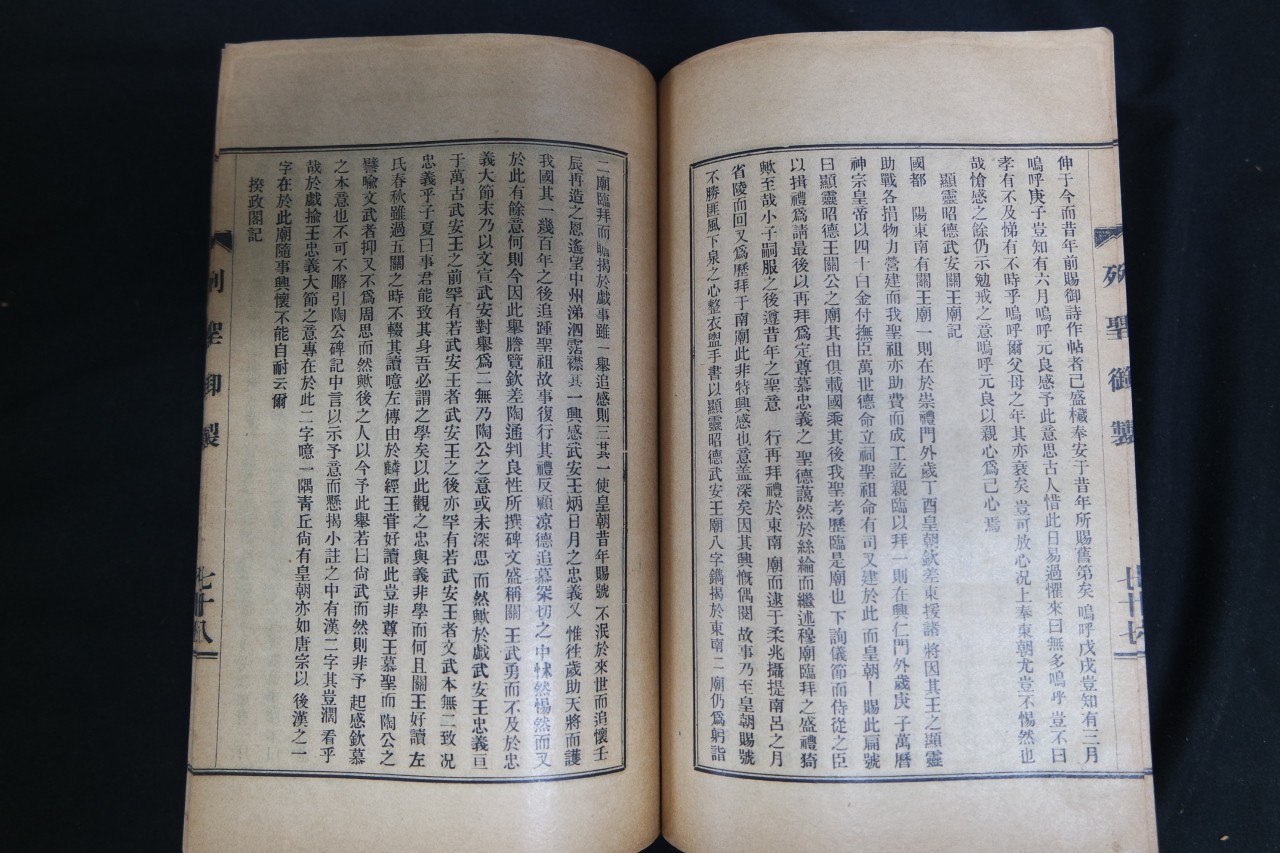 伸于今而昔年前賜御詩作帖者已盛欌奉安于昔年所賜舊第矣嗚呼戊戌豈知有三月
嗚呼庚子豈知有六月嗚呼元良感予此意思古人惜此日易過懼來日無多嗚呼豈不曰
孝有不及悌有不時乎嗚呼爾父母之年其亦衰矣豈可放心况上奉東朝尤豈不惕然也
哉愴感之餘仍示勉戒之意嗚呼元良以親心爲己心焉
顯靈昭德武安關王廟記
國都 陽東南有關王廟一則在於崇禮門外歲丁酉皇朝欽差東援諸將因其王之顯靈
助戰各捐物力營建而我聖祖亦助費而成工訖親臨以拜一則在興仁門外歲庚子萬曆
神宗皇帝以四千白金付撫臣萬世德命立祠聖祖命有司又建於此而皇朝賜此扁號
曰顯靈昭德王關公之廟其由俱載國乘其後我聖考歷臨是廟也下詢儀節而侍從之臣
以揖禮爲請最後以再拜爲定尊慕忠義之聖德藹然於絲綸而繼述穆廟臨拜之盛禮猗
歟至哉小子嗣服之後遵昔年之聖意 行再拜禮於東南廟而逮于柔兆攝提南呂之月
省陵而回又爲歷拜于南廟此非特興感也意盖深矣因其興慨偶閱故事乃至皇朝賜號
不勝匪風下泉之心整衣盥手書以顯靈昭德武安王廟八字鐫揭於東南二廟仍爲躬詣
列聖御製
七十七
二廟臨拜而瞻揭於戲事雖一舉追感則三其一使皇朝昔年賜號不泯於來世而追懷壬
辰再造之恩遙望中州涕泗霑襟其一興感武安王炳日月之忠義又惟徃歲助天將而護
我國其一幾百年之後追踵聖祖故事復行其禮反顧凉德追慕㴱切之中怵然惕然而又
於此有餘意何則今因此舉謄覽欽差陶遙判良性所撰碑文盛稱關王武勇而不及於忠
義大節末乃以文宣武安對舉爲二無乃陶公之意或未深思而然歟於戲武安王忠義亘
于萬古武安王之前罕有若武安王者武安王之後亦罕有若武安王者文武本無二致况
忠義乎子夏曰事君能致其身吾必謂之學矣以此觀之忠與義非學而何且關王好讀左
氏春秋雖過五關之時不輟其讀噫左傳由於麟經王嘗好讀此豈非尊王慕聖而陶公之
譬喩文武者抑又不爲周思而然歟後之人以今予此舉若曰尙武而然則非予起感欽慕
之本意也不可不略引陶公碑記中言以示予意而懸揭小註之中有漢二字其豈濶看乎
哉於戲揄王忠義大節之意專在於此二字噫一隅靑丘尙有皇朝亦如唐宗以後漢之二
字在於此廟隨事興懷不能自耐云爾
揆政閣記
列聖御製
七十八